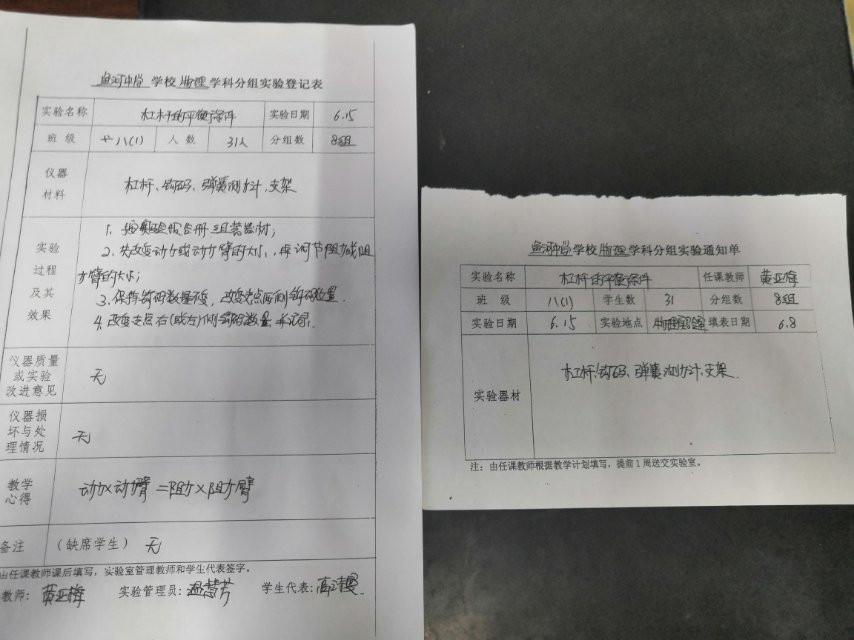 鱼河中学 学校 物理 学科分组实验登记表
实验名称 杠杆的平衡条件 实验日期 6.15
班 级 八(1) 人 数 31人 分组数 8组
仪器
材料
杠杆、钩码、弹簧测力计、支架
实验
过程
及其
效果
组装器材;
2. 先改变动力或动力臂的大小, 调节阻力或阻
力臂的大小;
3. 保持钩码数量不变, 改变支点两侧钩码位置.
4. 改变支点右(或左)侧钩码数量, 并记录.
仪器质量
或实验
改进意见
无
仪器损
坏与处
理情况
无
教学
心得
动力×动力臂=阻力×阻力臂
备注 (缺席学生) 无
由任课教师课后填写,实验室管理教师和学生代表签字。
教师: 黄亚梅 实验管理员: 温慧芳 学生代表:
鱼河中学 学校 物理 学科分组实验通知单
实验名称 杠杆的平衡条件 任课教师 黄亚梅
班 级 八(1) 学生数 31 分组数 8组
实验日期 6.15 实验地点 物理实验室 填表日期 6.8
实验器材 杠杆、钩码、弹簧测力计、支架
注:由任课教师根据教学计划填写,提前1周送交实验室。